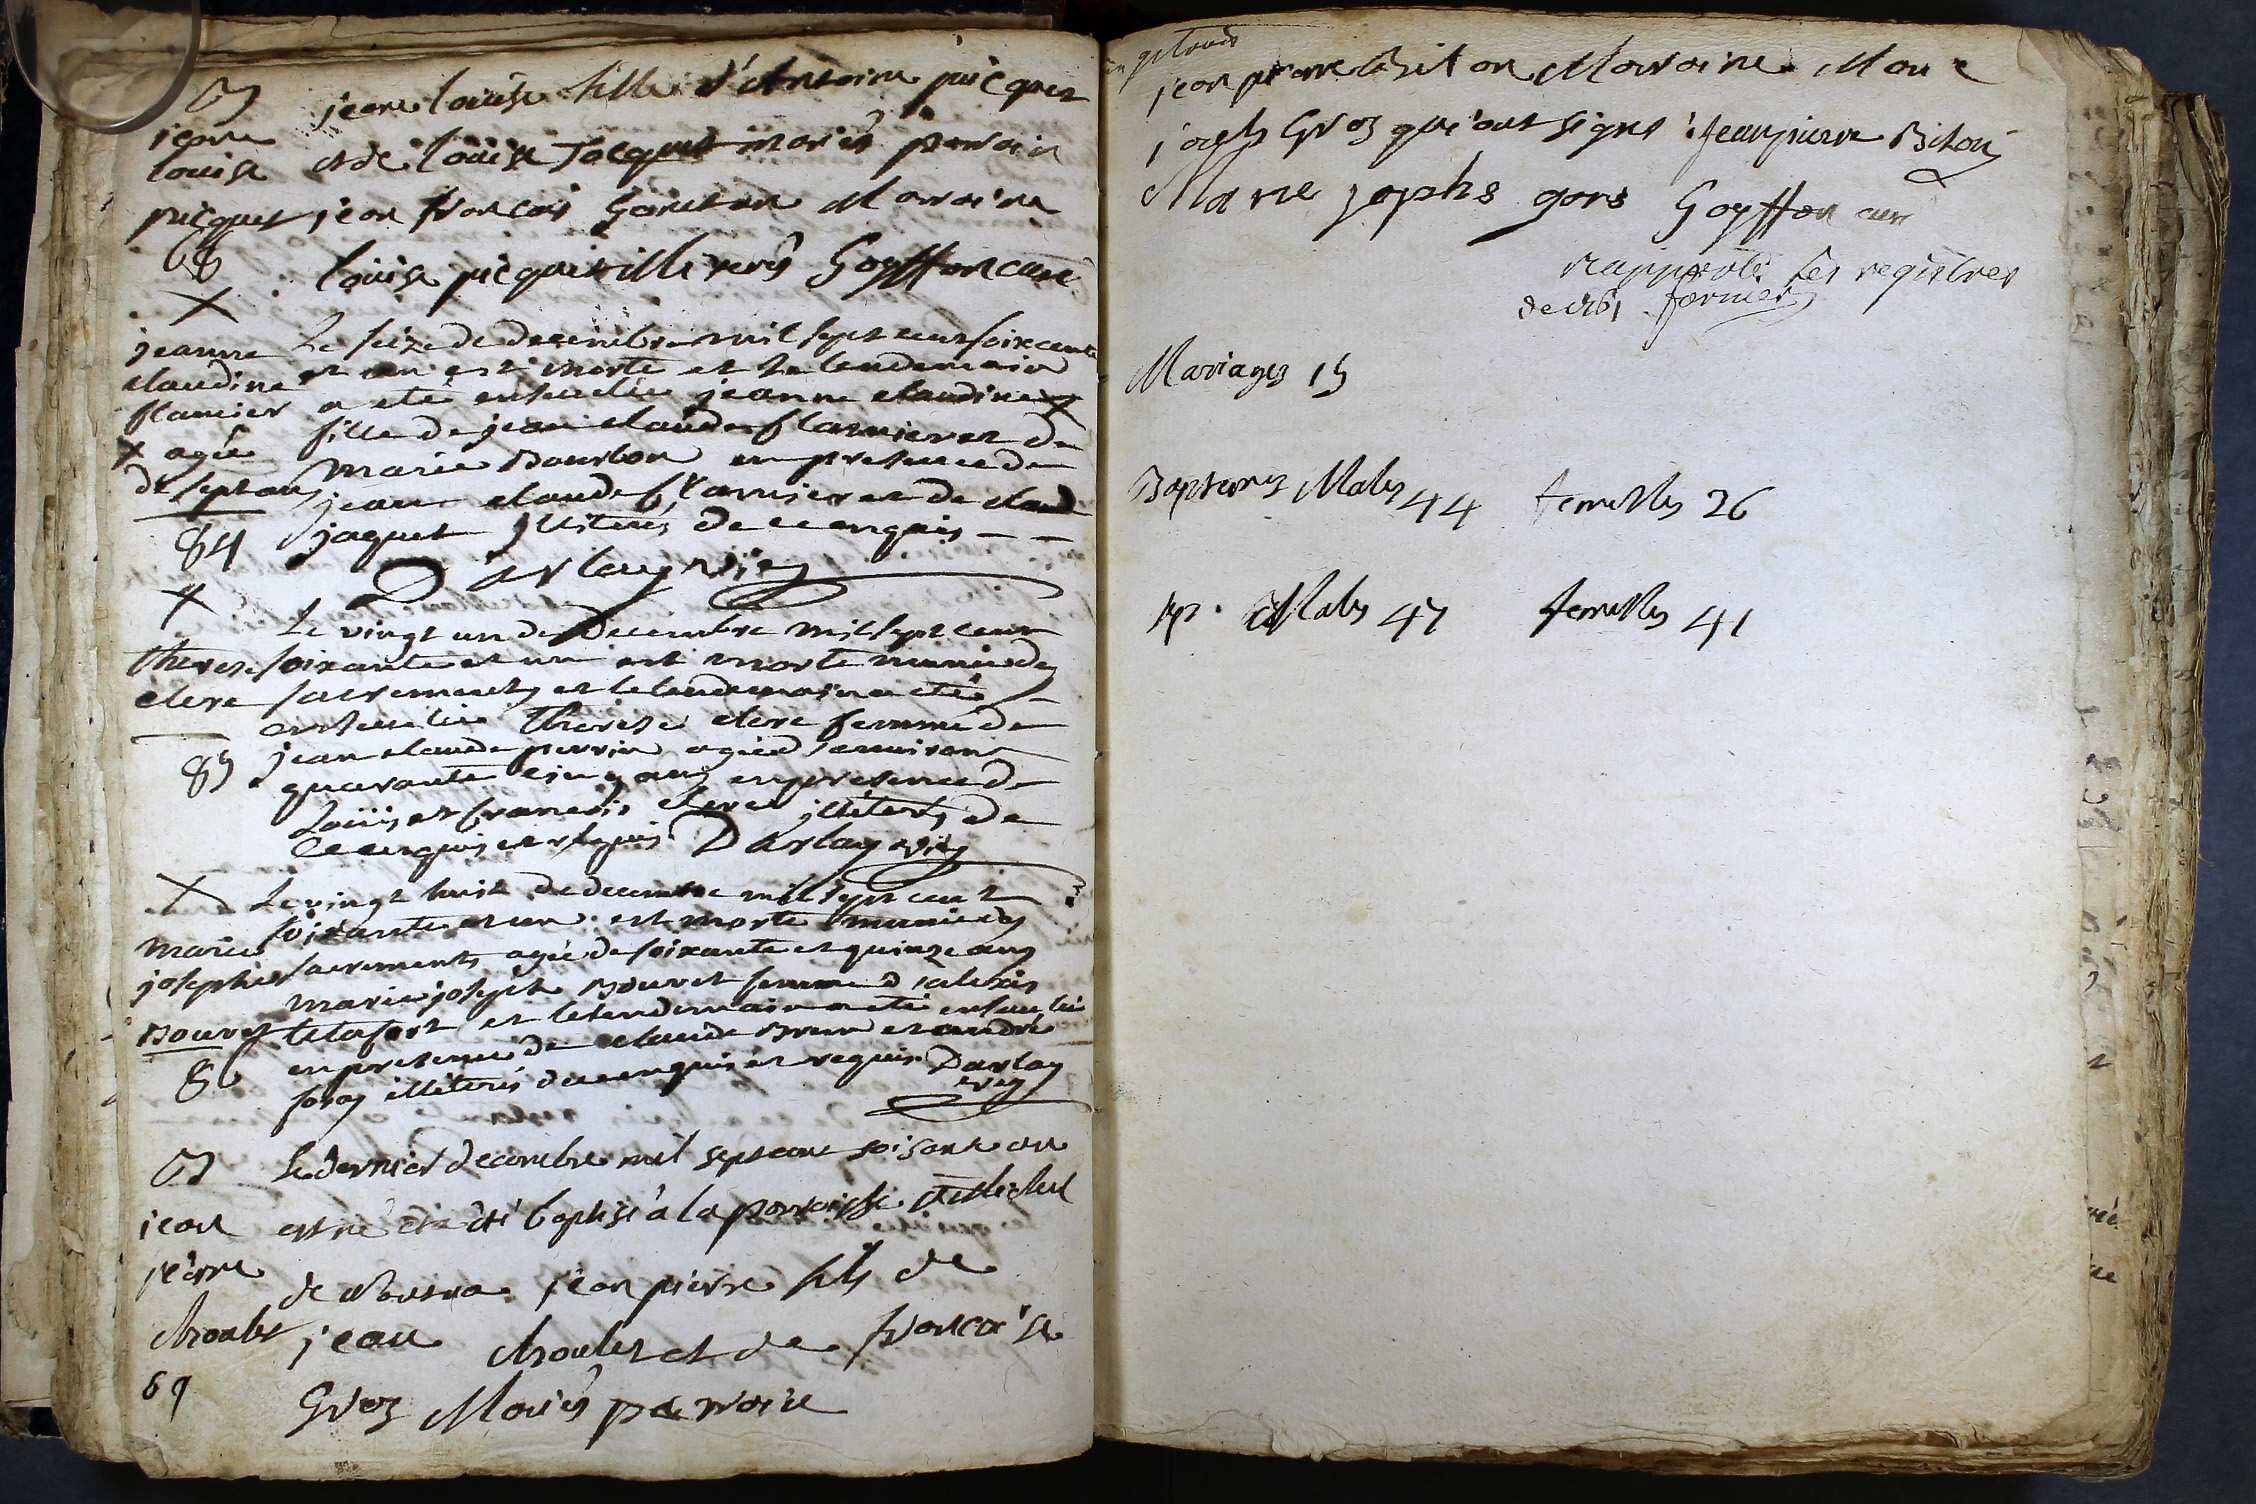 jeane louise fille d'Antoine picquet
jeane
louise et de louise Jacquet mariés parrain
picquet jean francois Marraine
68 louise picquet illiterés Goyffon curé
Le seize de decembre mil sept cent soixcente
jeanne et un est morte et le lendemain
claudine
flamier a eté ensevelie jeanne claudine
fille de jean claude flamier et de
X agée
de sept ans marie Bourbon en presence de
jean claude flamier et de claude
84 jaquet illiterés de ce enquis - -
Darlay vic
X
Le vingt un de Decembre mil sept cent
Therese soixante et un est morte munie des
clere sacrements et le lendemain a eté
ensevelie Therese clere femme de
85 jean claude perrin agée d'environ
quarante cinq ans en presence de
Loüis et francois clere illiterés de
ce enquis et requis Darlay vic
X Le vingt huit de decembre mil sept cent
soixante et un est morte munie des
marie
josephe sacrements agée de soixante et quinze ans
marie joseph Bouvet femme d'alexis
Bouvet et le lendemain a eté ensevelie
86 en presence de claude Brun et andré
illiterés de ce enquis et requis Darlay
vic
le dernier decembre mil sept cent soisante un
jean est né et a été baptisé à la parroisse
pierre de jean pierre fils de
jean et de francoise
69 Groz Mariés parrain
jean pierre Biton Marraine Marie
joseph Groz qui ont signé jean pierre Biton
Marie jophs gors Goyffon curé
rapporté les registres
de 1761 fornier
Mariages 15
Baptemes Males 44 femelles 26
sep. Males 47 femelles 41